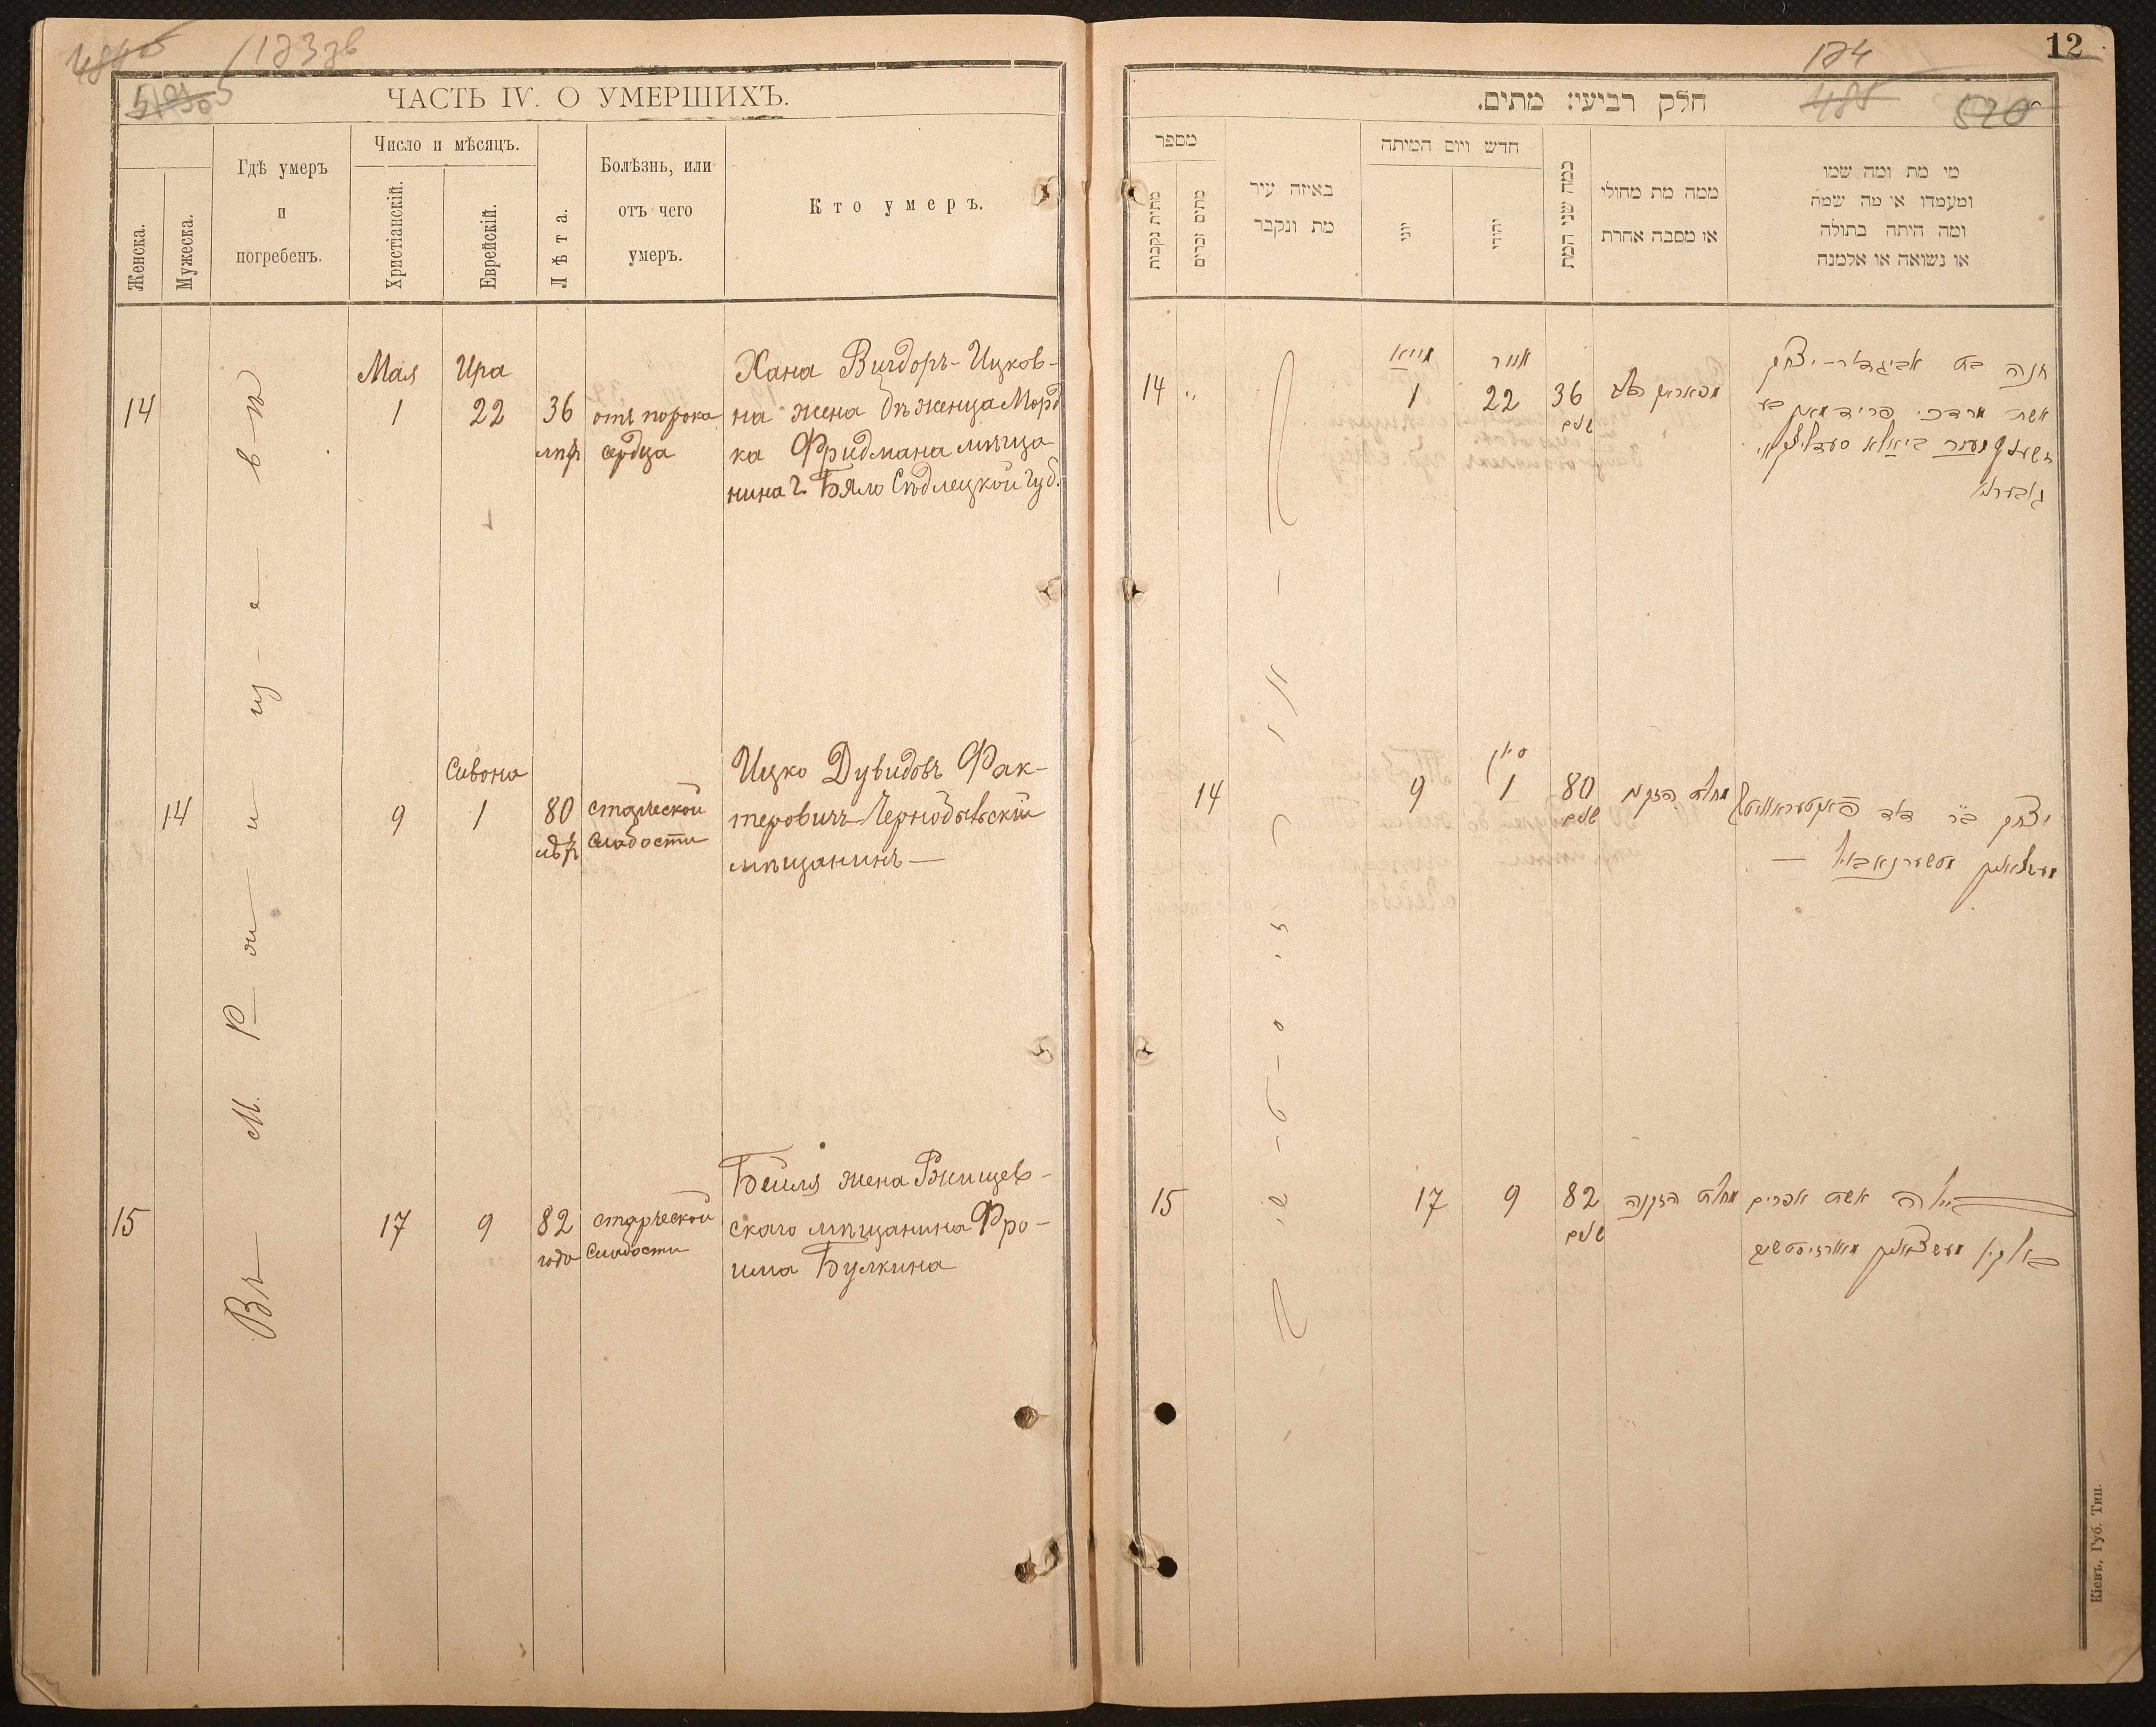 173 зв
ЧАСТЬ IV. О УМЕРШИХЪ.
Женска.
Мужеска.
Гдѣ умеръ
и
погребенъ.
Число и мѣсяцъ.
Христіанскій.
Еврейскій.
Лѣта.
Болѣзнь, или
отъ чего
умеръ.
Кто умеръ.
Въ М. Р
14
Мая
1
Ира
22
36
лѣтъ
отъ порока
сердца
Хана Вигдоръ-Ицков-
на жена бѣженца Морд
ка Фридмана мѣща
нина г. Бяло Сѣдлецкой губ.
14
9
Сивона
1
80
лѣтъ
старческой
слабости
Ицко Дувидовъ Фак-
теровичъ Чернобыльскій
мѣщанинъ —
15
17
9
82
года
старческой
слабости
Бейля жена Ржищев-
скаго мѣщанина Фро-
има Булкина
174
12
485
520
חלק רביעי: מתים.
מספר
מתות נקבות
מתים זכרים
באיזה עיר
מת ונקבר
חדש ויום המיתה
יוני
יהודי
כמה שני המת
ממה מת מחולי
או מסבה אחרת
מי מת ומה שמו
ומעמדו או מה שמה
ומה היתה בתולה
או נשואה או אלמנה
14
מייא
1
אייר
22
36
שנים
חנה בת אביגדור-יצחק
אשת מרדכי פרידמאן
14
9
סיון
1
80
שנים
מחלת הזקנה
יצחק בר דוד פאקטעראוויטש
מעשצאנין טשערנאבאל —
15
17
9
82
שנים
מחלת הזקנה
ביילה אשת אפרים
Кіевъ, Губ. Тип.